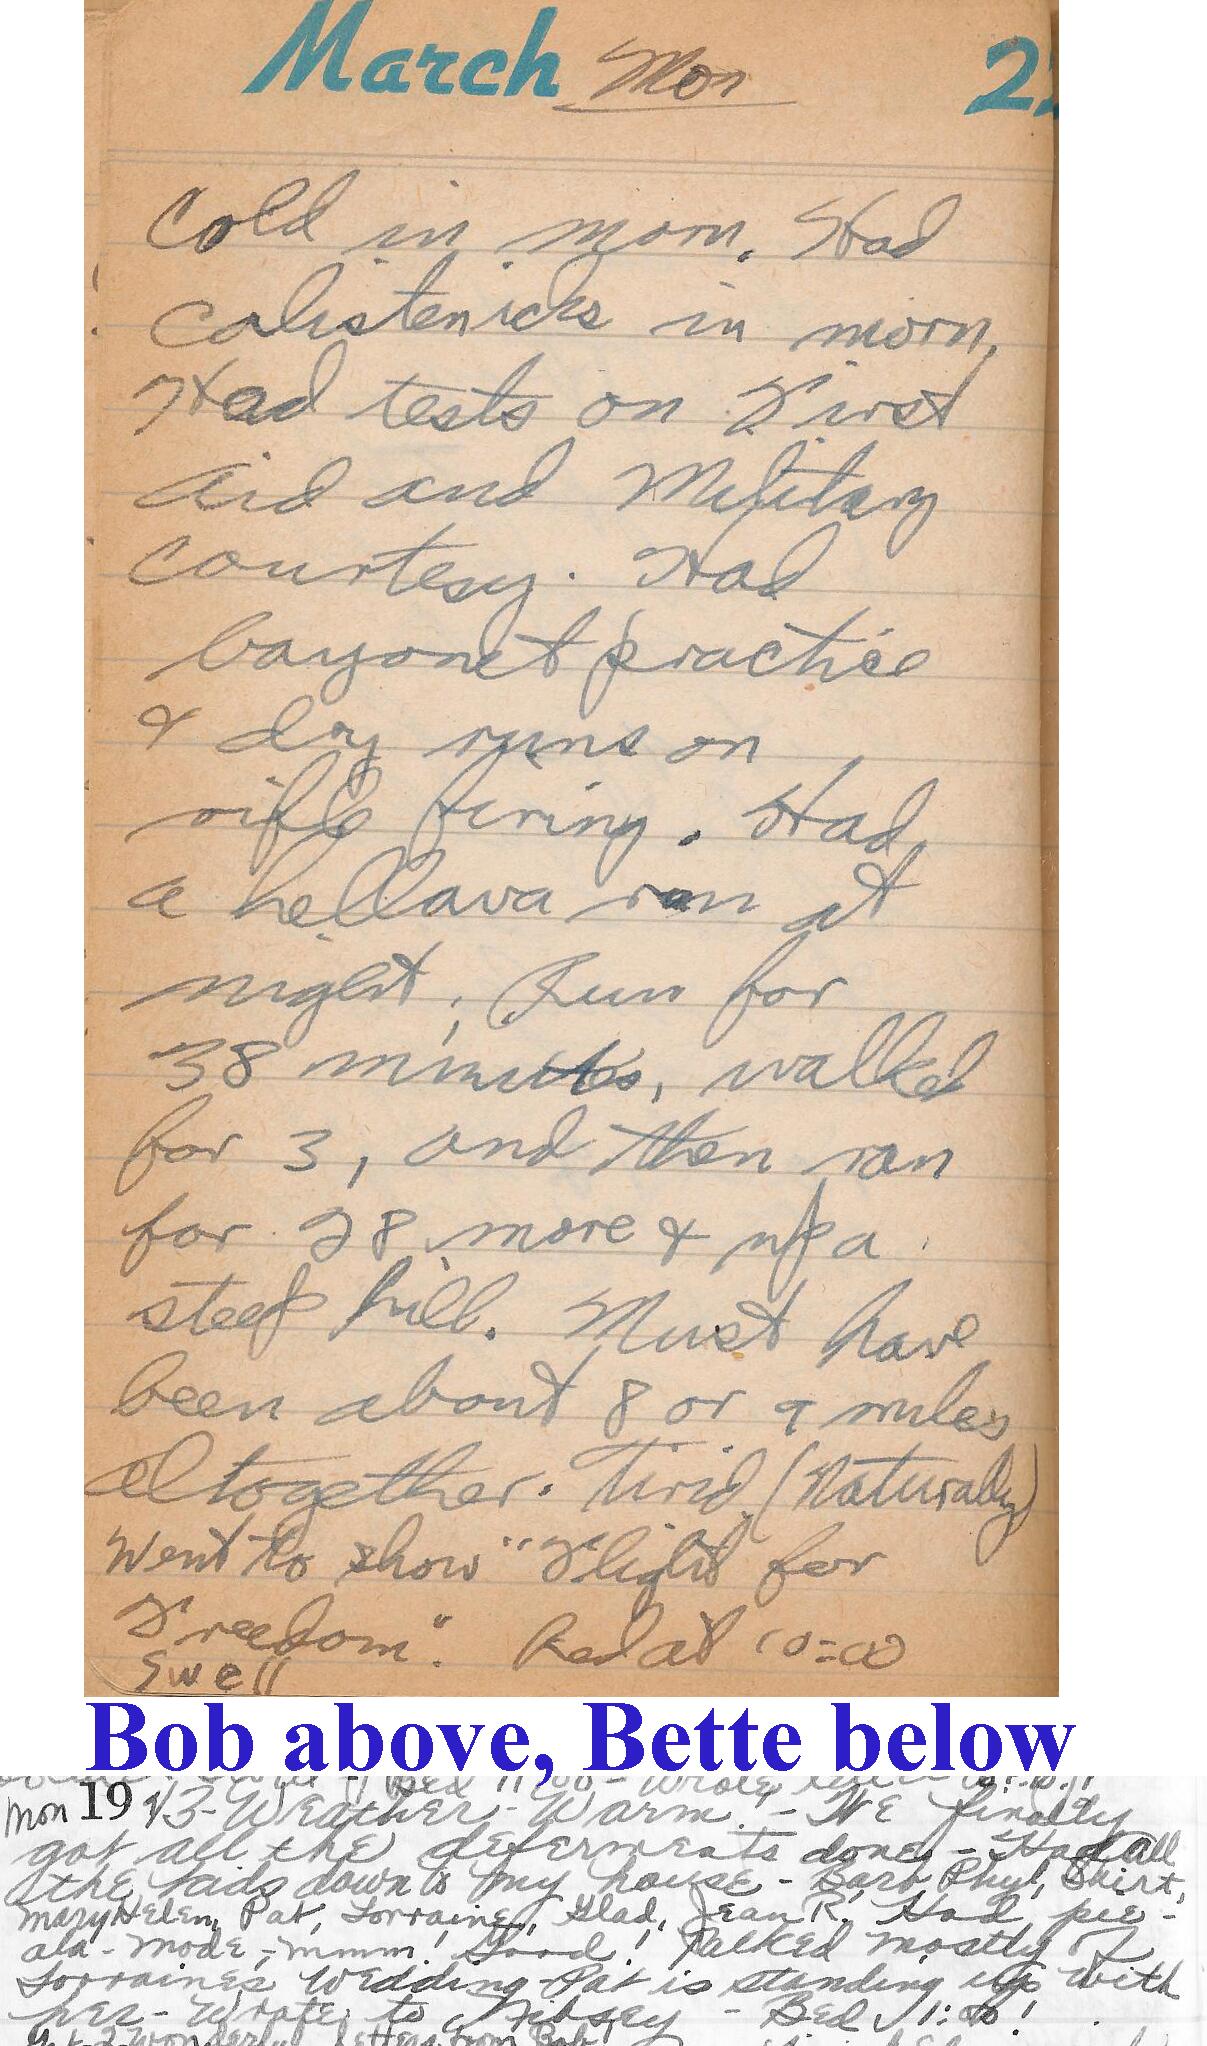 March Mon 22
Cold in morn. Had
calistenicks in morn.
Had tests on First
Aid and Military
courtesy. Had
bayonet practice
& dry runs on
rifle firing. Had
a hellava run at
night. Run for
38 minutes, walked
for 3, and then ran
for 28 more & up a
steep hill. Must have
been about 8 or 9 miles
altogether. Tirid (Naturally)
Went to show "Flight for
Freedom". Bed at 10=00
Swell
Bob above, Bette below
Bed 11:00 - Wrote
Mon 1943 - Weather - Warm - We finally
got all the deferments done - Had all
the kids down to my house - Barb, Phyl, Skirt,
Mary Helen, Pat, Lorraine, Glad, Jean R. Had pie-
ala-mode - mmm! Good! Talked mostly of
Lorraine's Wedding - Pat is standing up with
her - Wrote to - Bed
Got 2 wonderful letters from Bob!